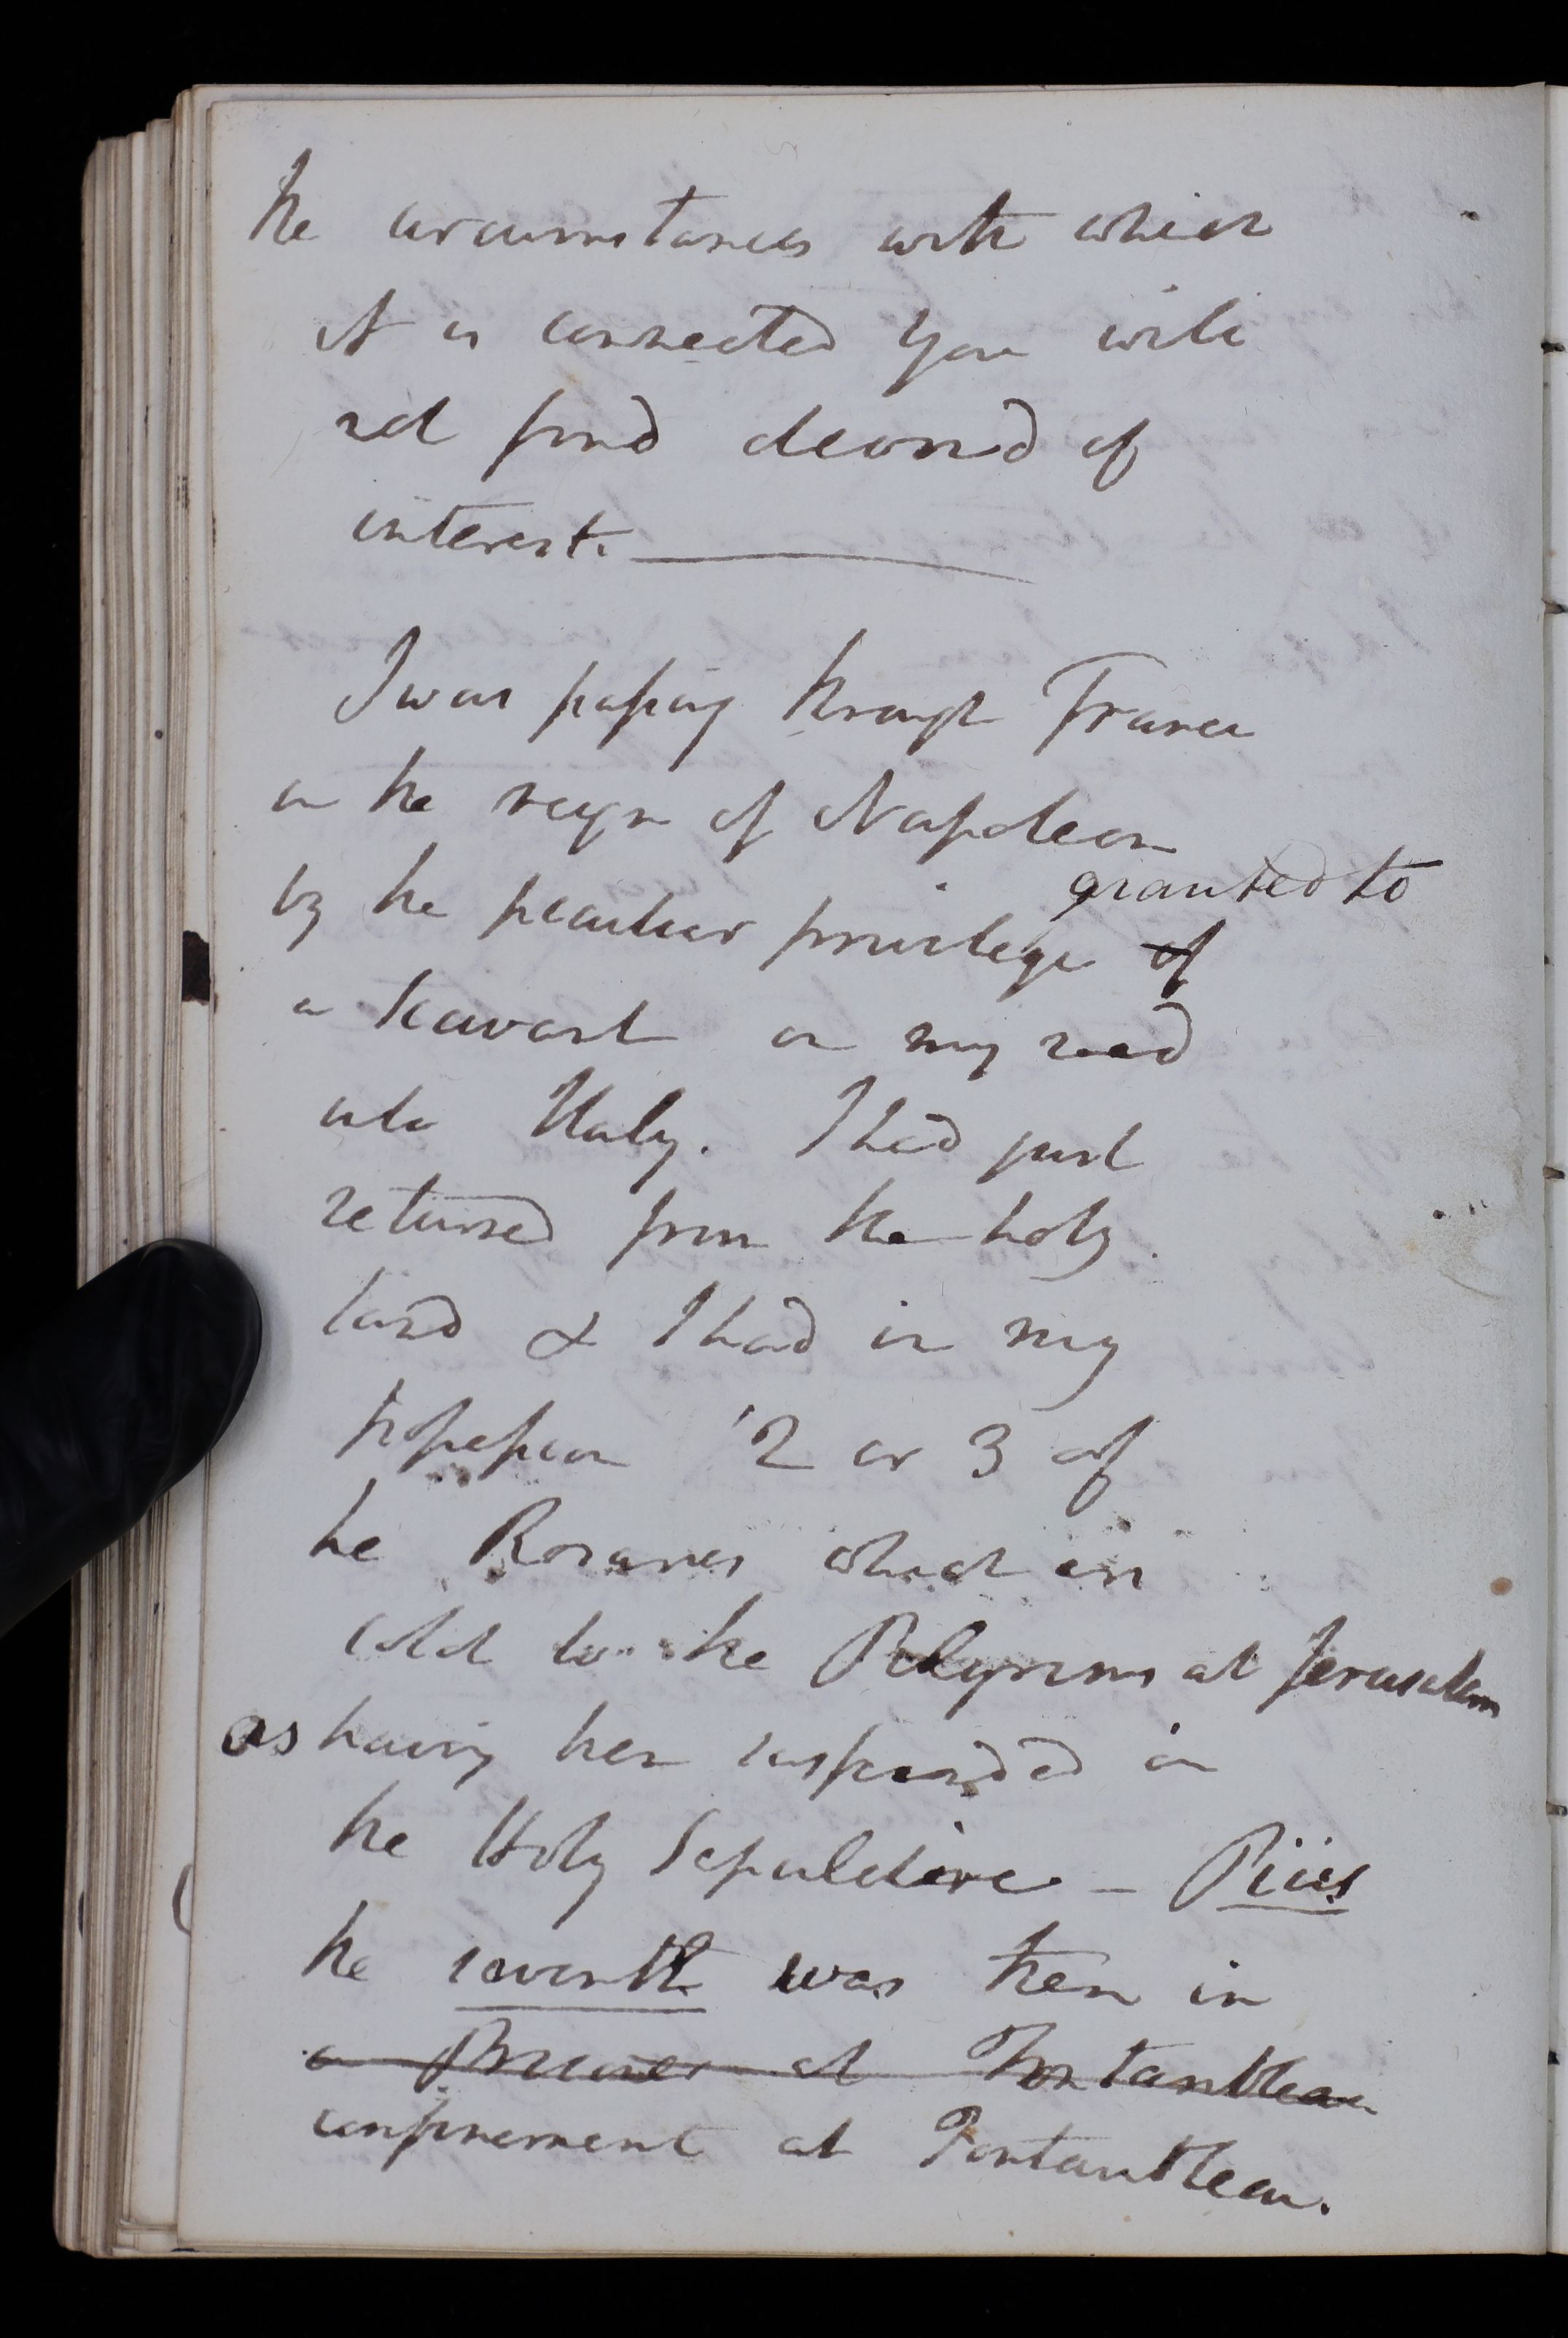 the circumstances with which
it is connected you will
not find devoid of
interest. ———
I was passing through France
in the reign of Napoleon
granted to
by the peculiar privilege of
a savant on my road
into Italy. I had just
returned from the holy
land & I had in my
possession 2 or 3 of
the Rosaries which are
sold to the Pilgrims at Jerusalem
as having been suspended in
the Holy Sepulchre – Pius
the seventh was then in
a prisoner at Fontainbleau
confinement at Fontainbleau.